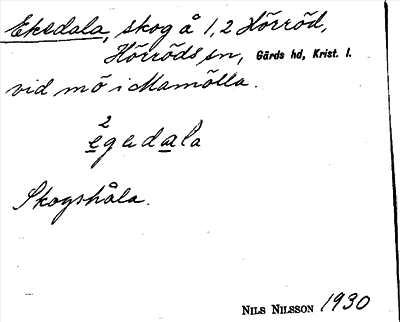 Eksdala, skog å 1, 2 Hörröd,
Hörröds sn, Gärds hd, Krist. l.
vid mö i Mamölla.
2
Skogshåla.
NILS NILSSON 1930